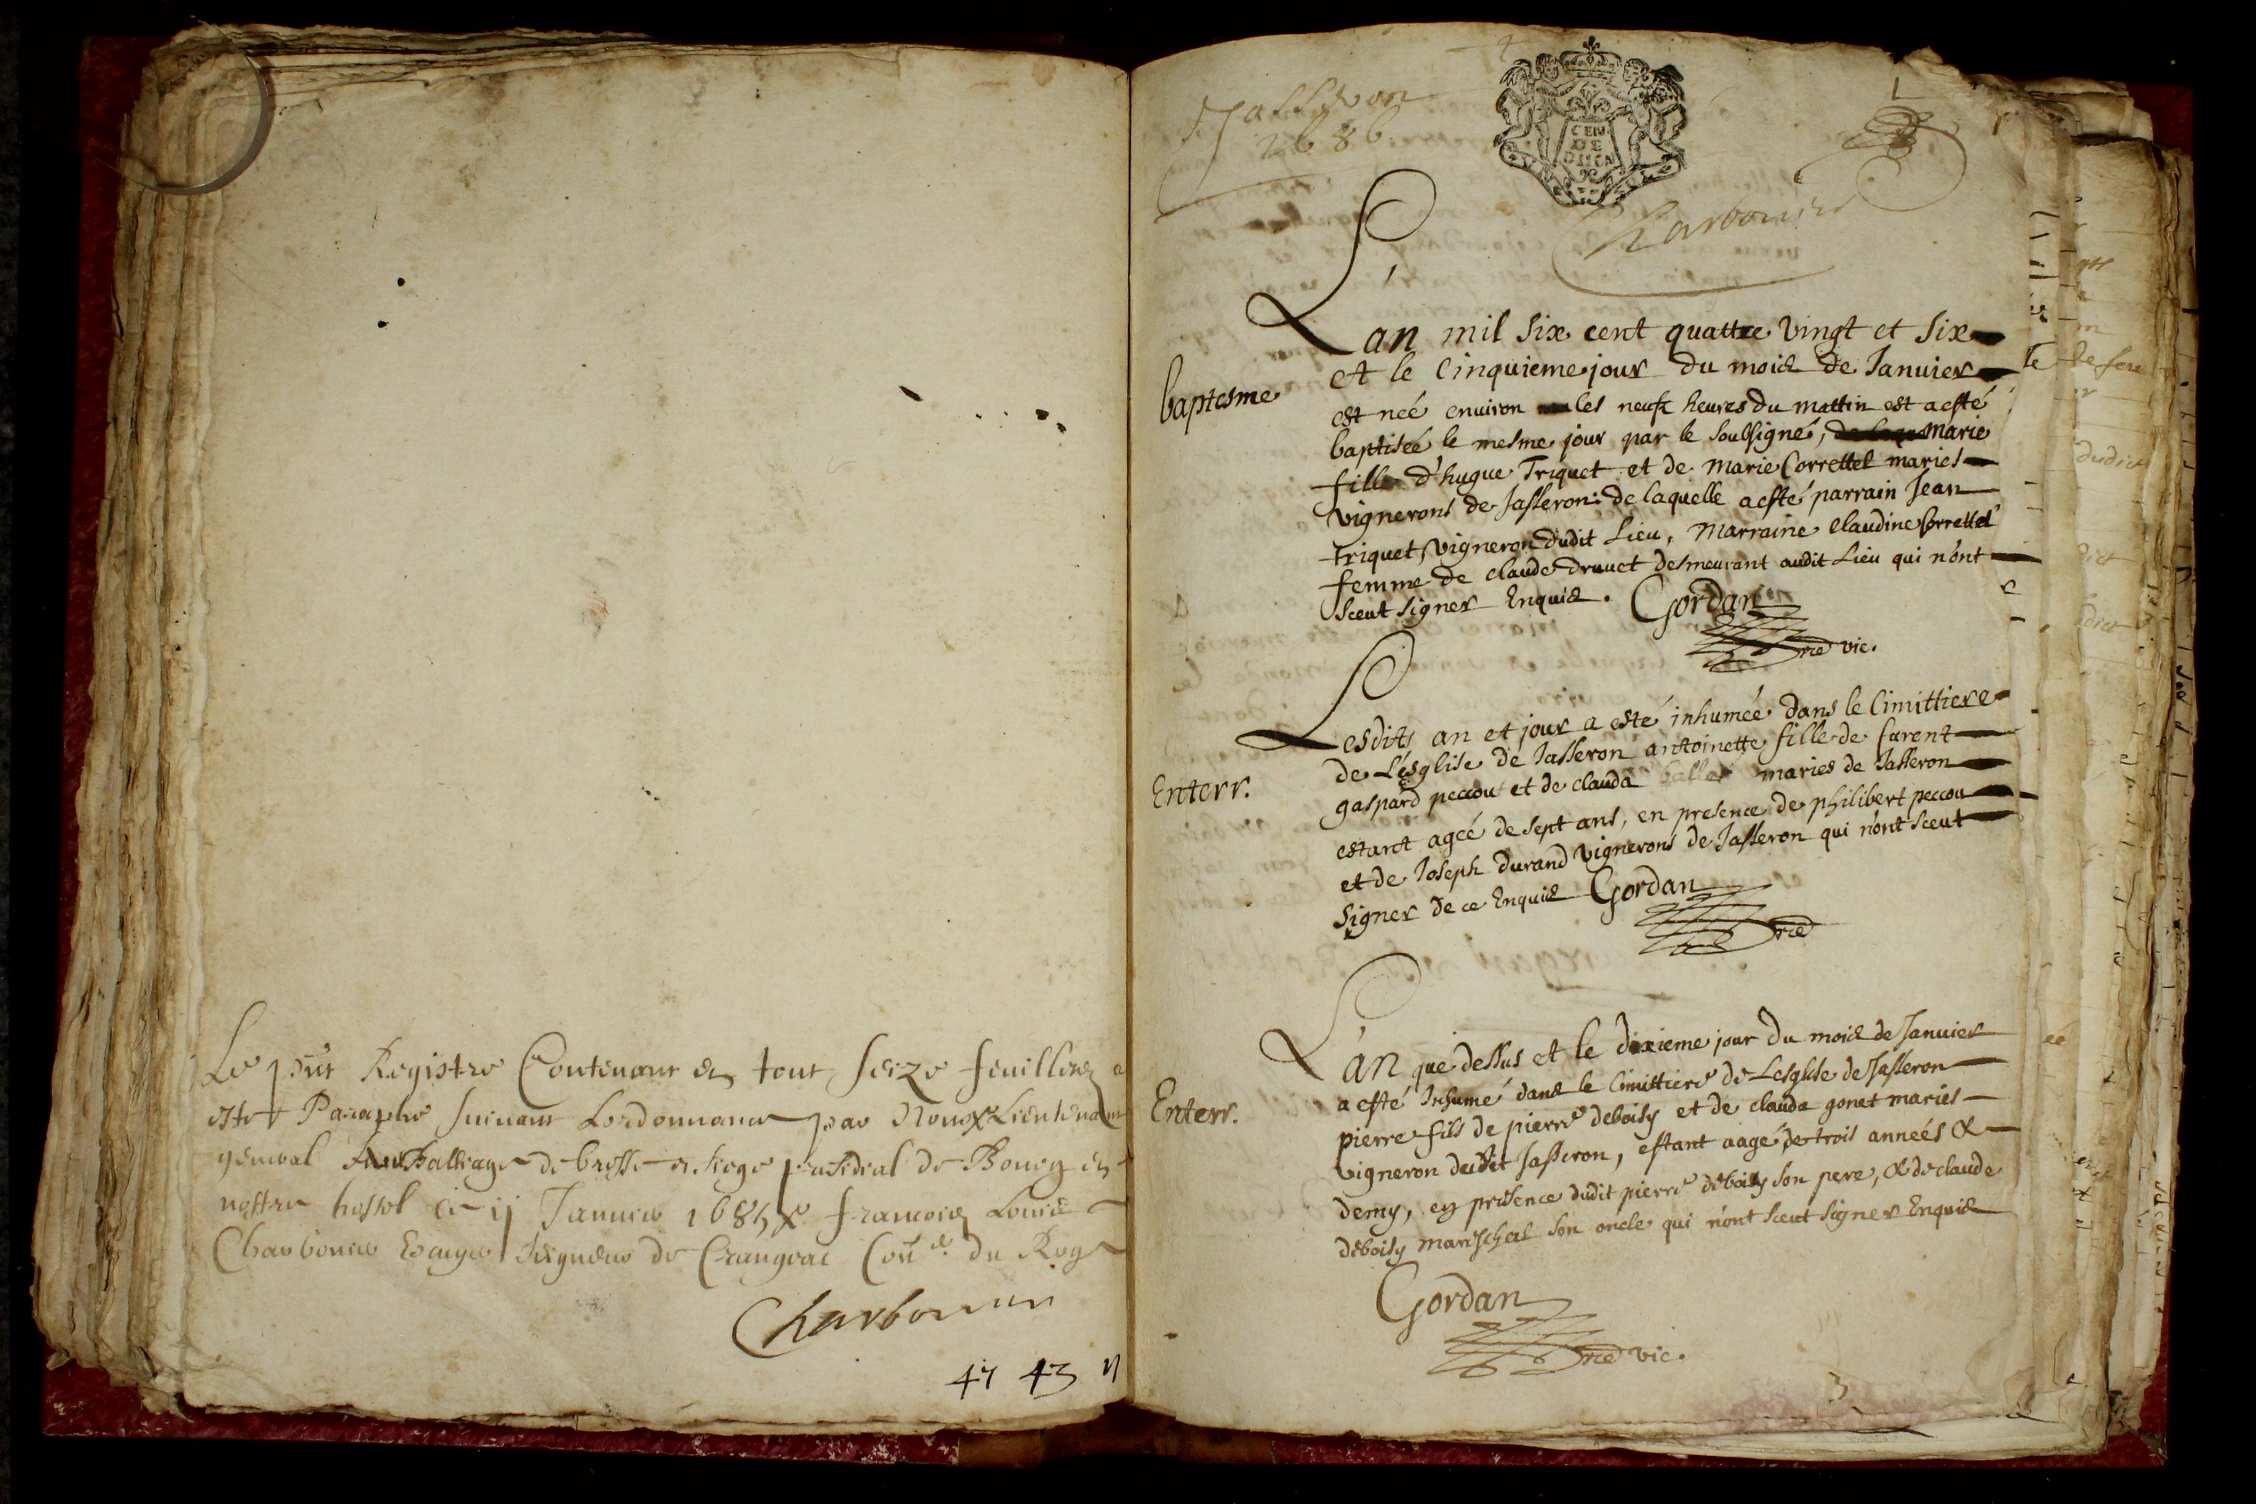 Le pnt Registre Contenant en tout seize feuillets a
esté Paraphé suivant Lordonnance par Nous Lieutenant
general au Bailliage de bresse et siege presidial de Bourg en
nostre hostel ce ij Janvier 1685 françois Louis
Charbonnier Escuyer seigneur de Crangeac Con.er du Roy
Charbonnier
47 43 11
Jasseron
1686
1
CEN
DE
Charbonnier
Lan mil six cent quattre vingt et six
et le cinquieme jour du mois de Januier
baptesme
est neé enuiron les neufz heures du mattin est a esté
baptiseé le mesme jour par le soubsigné, Marie
fille d'hugue Triquet et de Marie Correttel maries
vignerons de Jasseron: de laquelle a esté parrain Jean
Triquet vigneron dudit Lieu, Marraine Claudine Correttel
femme de claude druuet desmeurant audit Lieu qui n'ont
sceut signer Enquis. Gordan
vic.
Lesdits an et jour a esté inhumée dans le Cimittiere
de L'esglise de Jasseron antoinette fille de furent
Enterr.
gaspard peccou et de clauda ballet maries de Jasseron
estant ageé de sept ans, en presence de philibert peccou
et de Joseph durand vignerons de Jasseron qui n'ont sceut
signer de ce Enquis Gordan
L'an que dessus et le dixieme jour du mois de Januier
Enterr.
a esté Inhumé dans le Cimittiere de Lesglise de Jasseron
pierre fils de pierre deboisy et de clauda gonet maries
vigneron dudit Jasseron, estant aagé de trois anneés &
demy, en présence dudit pierre déboisy son pere, & de claude
déboisy mareschal son oncle qui n'ont sceut signer Enquis
Gordan
vic.
3